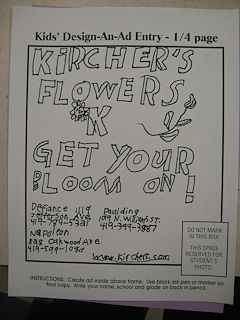 Kids' Design-An-Ad Entry - 1/4 page
KIRCHER'S
FLOWERS
K
GET YOUR
BLOOM ON!
Defiance 1119
Jefferson Ave
Paulding
1019 N. Williams St.
419-399-3887
Napoleon
Oakwood Ave
DO NOT MARK
IN THIS BOX.
THIS SPACE
RESERVED FOR
STUDENT'S
PHOTO.
INSTRUCTIONS: Create ad inside above frame. Use black ink pen or marker on
final copy. Write your name, school and grade on back in pencil.